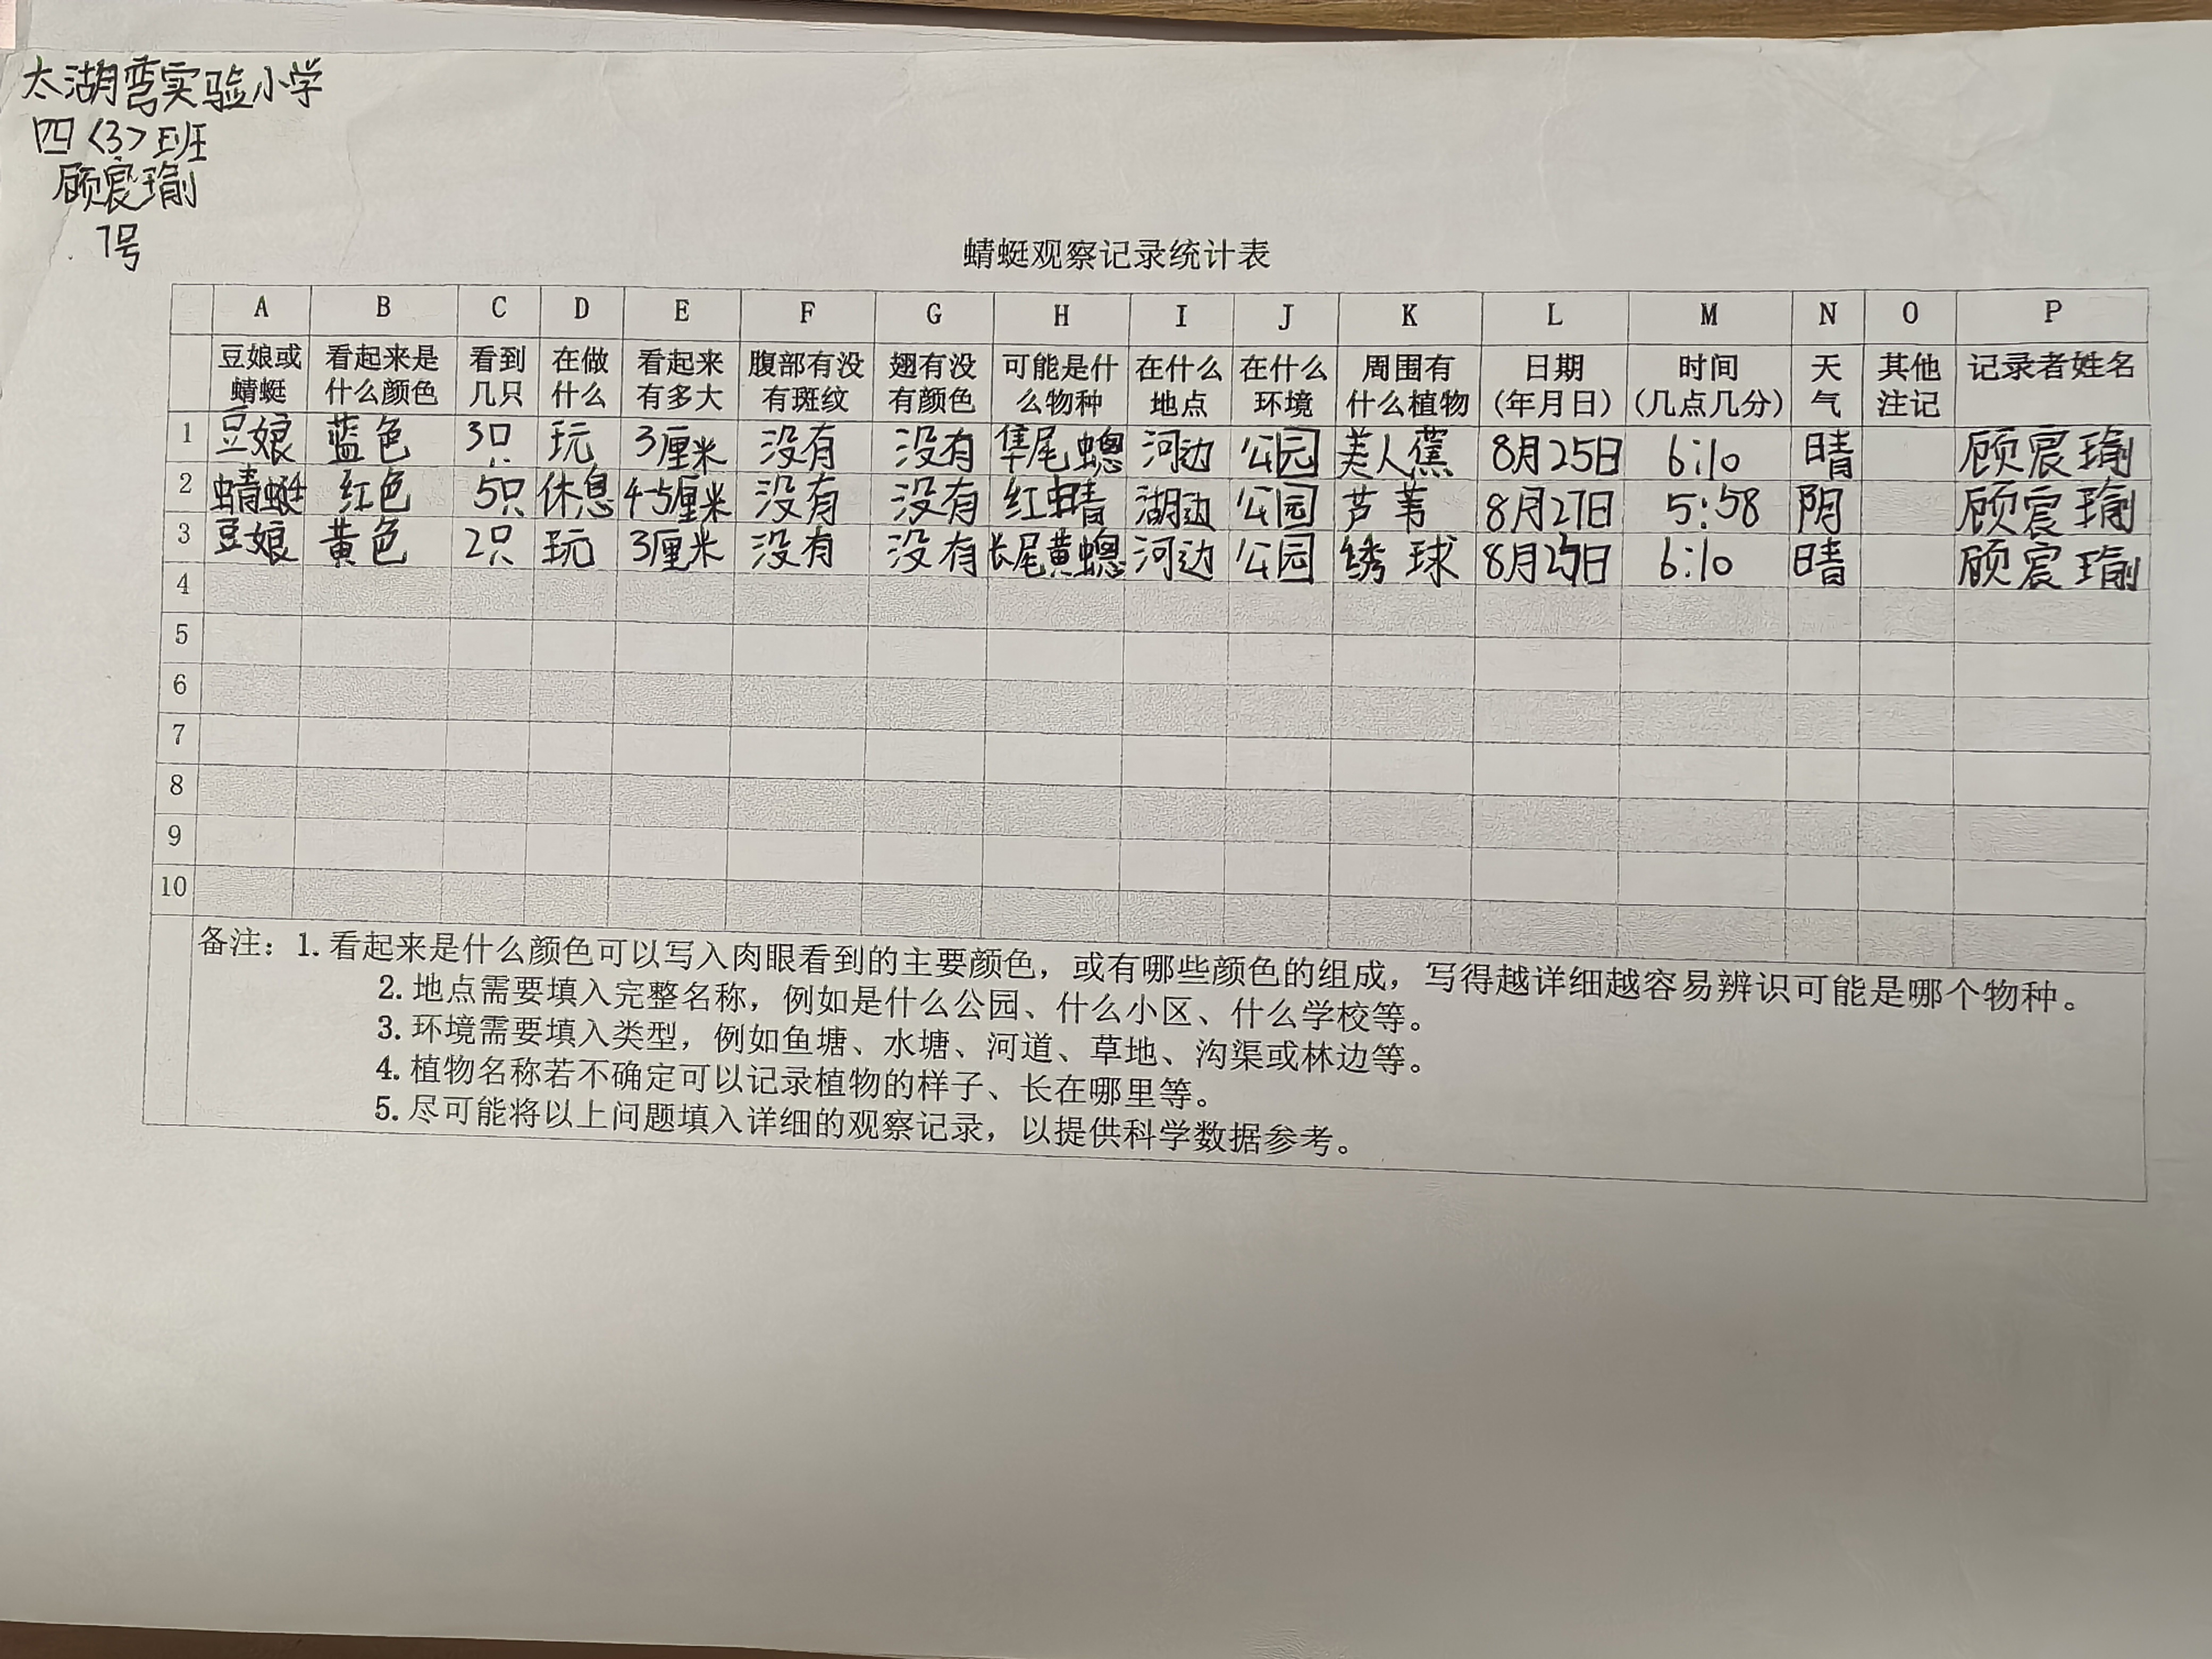 太湖湾实验小学
四〈3〉班
顾宸瑜
7号
蜻蜓观察记录统计表
A B C D E F G H I J K L M N O P
豆娘或蜻蜓 看起来是什么颜色 看到几只 在做什么 看起来有多大 腹部有没有斑纹 翅有没有颜色 可能是什么物种 在什么地点 在什么环境 周围有什么植物 日期(年月日) 时间(几点几分) 天气 其他注记 记录者姓名
1 豆娘 蓝色 3只 玩 3厘米 没有 没有 隼尾蟌 河边 公园 美人蕉 8月25日 6:10 晴 顾宸瑜
2 蜻蜓 红色 5只 休息 4-5厘米 没有 没有 红蜻 湖边 公园 芦苇 8月27日 5:58 阴 顾宸瑜
3 豆娘 黄色 2只 玩 3厘米 没有 没有 长尾黄蟌 河边 公园 绣球 8月 日 6:10 晴 顾宸瑜
4
5
6
7
8
9
10
备注：1. 看起来是什么颜色可以写入肉眼看到的主要颜色，或有哪些颜色的组成，写得越详细越容易辨识可能是哪个物种。
2. 地点需要填入完整名称，例如是什么公园、什么小区、什么学校等。
3. 环境需要填入类型，例如鱼塘、水塘、河道、草地、沟渠或林边等。
4. 植物名称若不确定可以记录植物的样子、长在哪里等。
5. 尽可能将以上问题填入详细的观察记录，以提供科学数据参考。